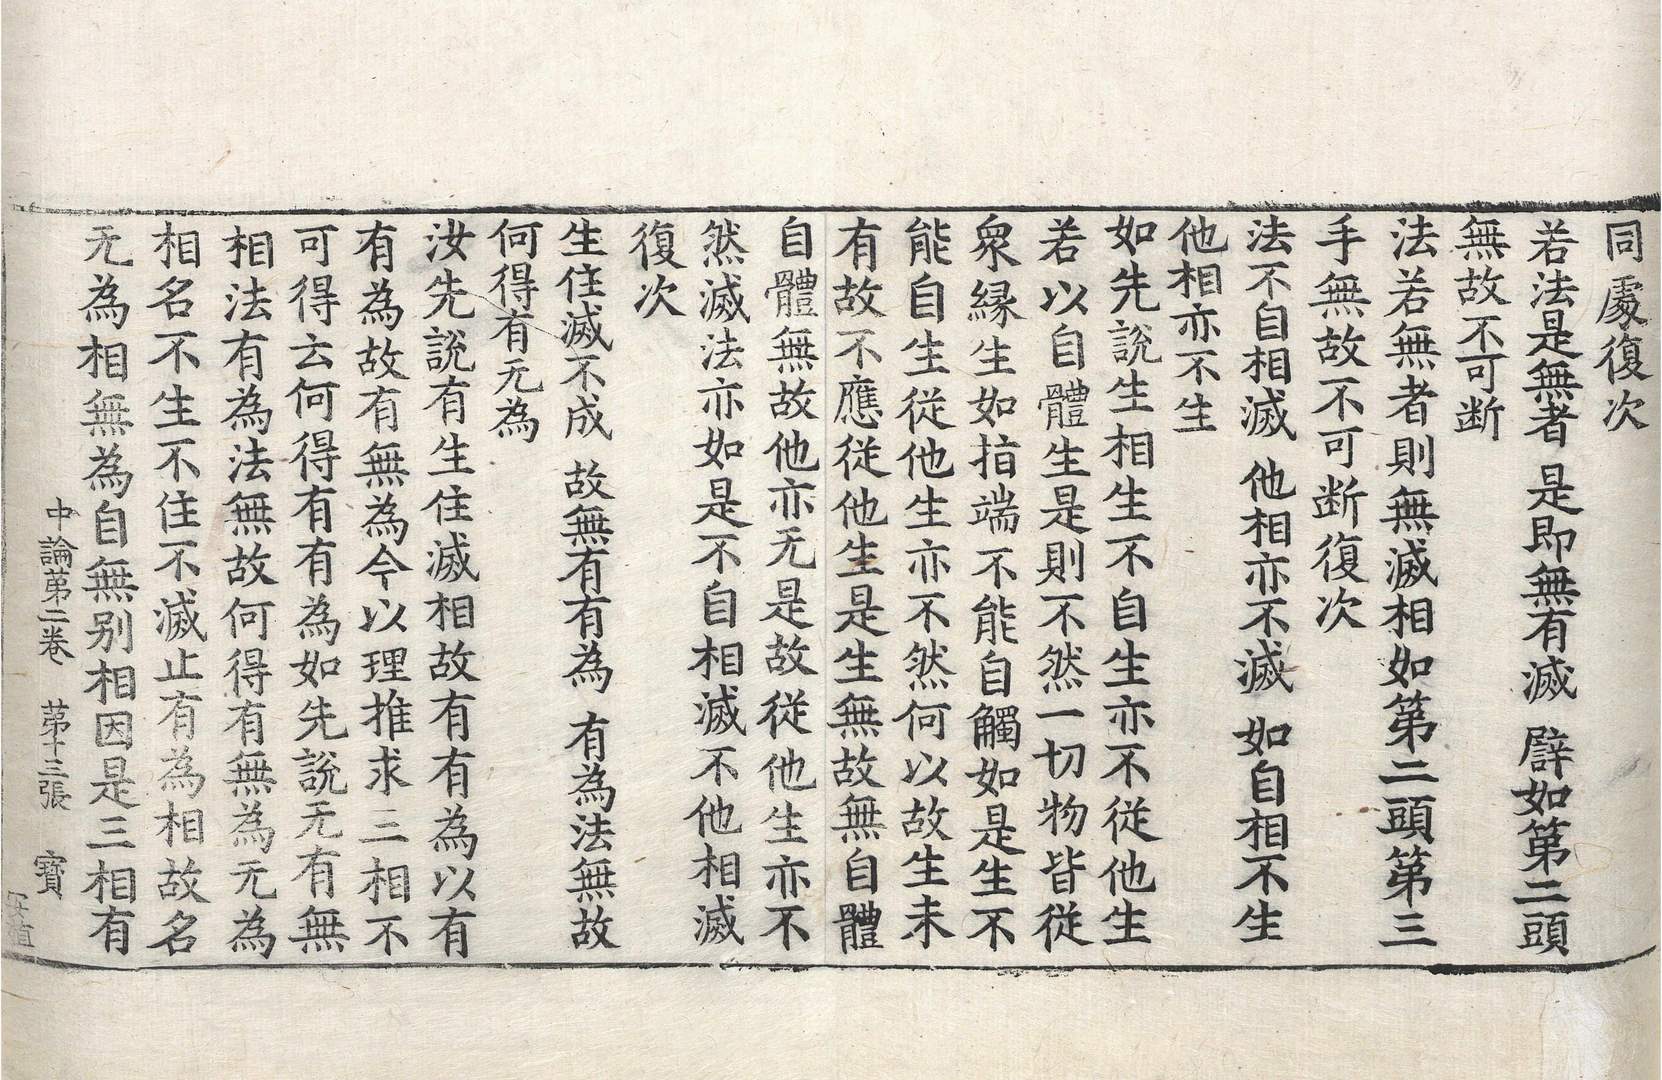 同處復次
若法是無者 是即無有滅 譬如第二頭
無故不可断
法若無者則無滅相如第二頭第三
手無故不可断復次
法不自相滅 他相亦不滅 如自相不生
他相亦不生
如先說生相生不自生亦不從他生
若以自體生是則不然一切物皆從
衆縁生如指端不能自觸如是生不
能自生從他生亦不然何以故生未
有故不應從他生是生無故無自體
自體無故他亦无是故從他生亦不
然滅法亦如是不自相滅不他相滅
復次
生住滅不成 故無有有為 有為法無故
何得有无為
汝先說有生住滅相故有有為以有
有為故有無為今以理推求三相不
可得云何得有有為如先說无有無
相法有為法無故何得有無為无為
相名不生不住不滅止有為相故名
无為相無為自無别相因是三相有
中論第二卷 苐十三張 寶